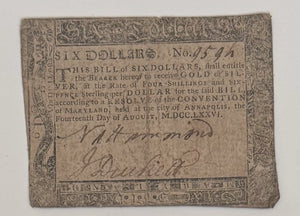 SIX DOLLARS. No. 9594
THIS BILL of SIX DOLLARS, shall entitle
the BEARER hereof to receive GOLD or SIL-
VER, at the Rate of FOUR-SHILLINGS and SIX-
PENCE Sterling per DOLLAR for the said BILL,
according to a RESOLVE of the CONVENTION
of MARYLAND, held at the City of ANNAPOLIS, the
Fourteenth Day of AUGUST, M.DCC.LXXVI.
N Hammond
J Duckett